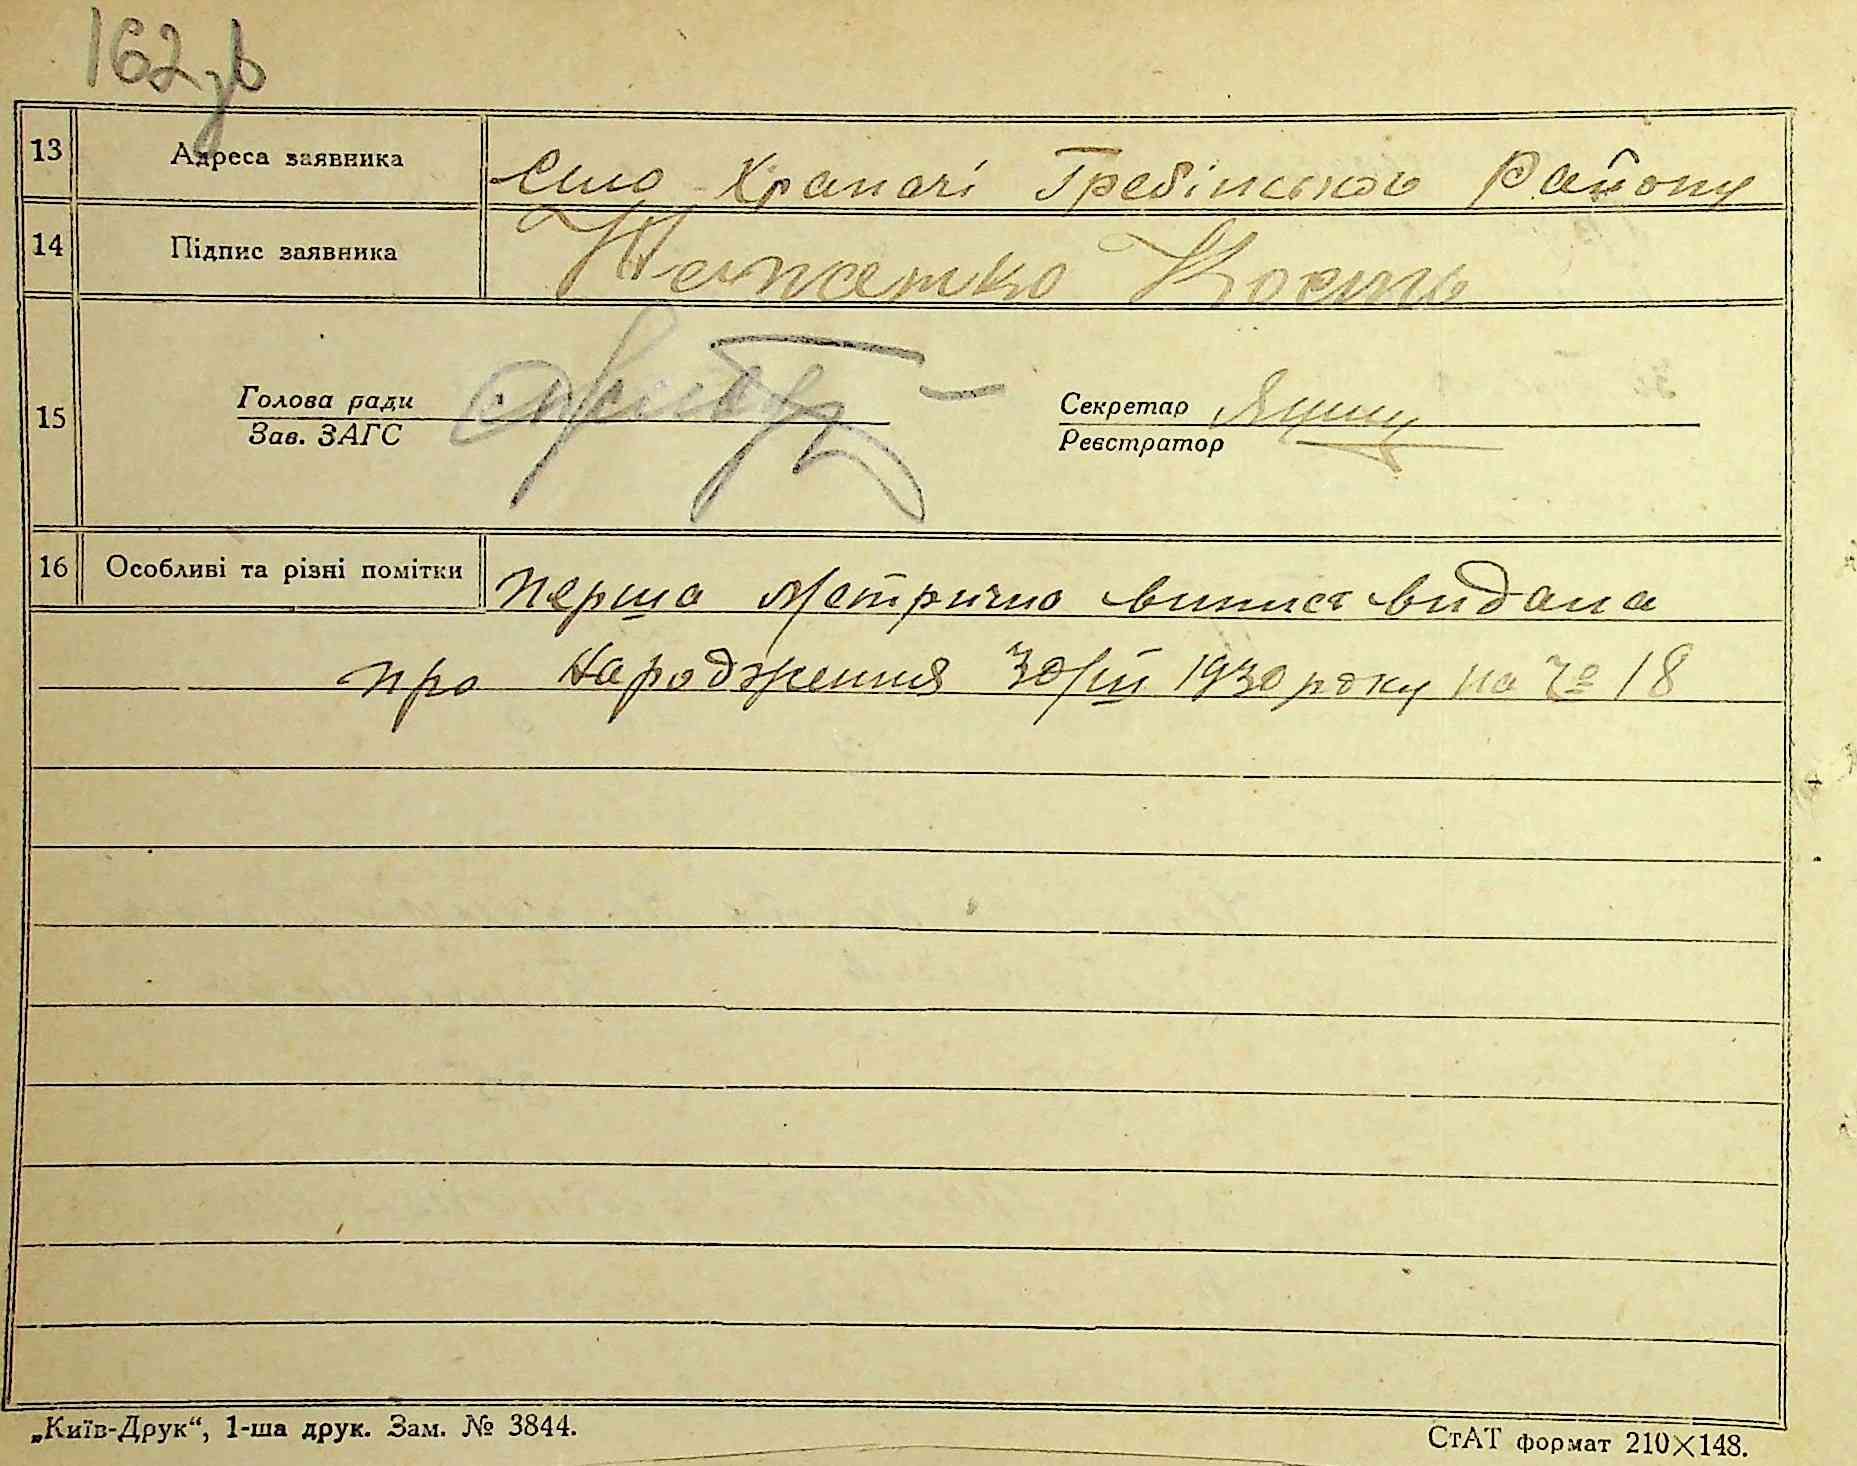 162 зв
13 Адреса заявника Село Храпачі Гребінської Району
14 Підпис заявника Кость
15 Голова ради Секретар
Зав. ЗАГС Реєстратор
16 Особливі та різні помітки Перша метрична випись видана
про народження 30/III 1930 року на № 18
„Київ-Друк“, 1-ша друк. Зам. № 3844.
СтАТ формат 210×148.